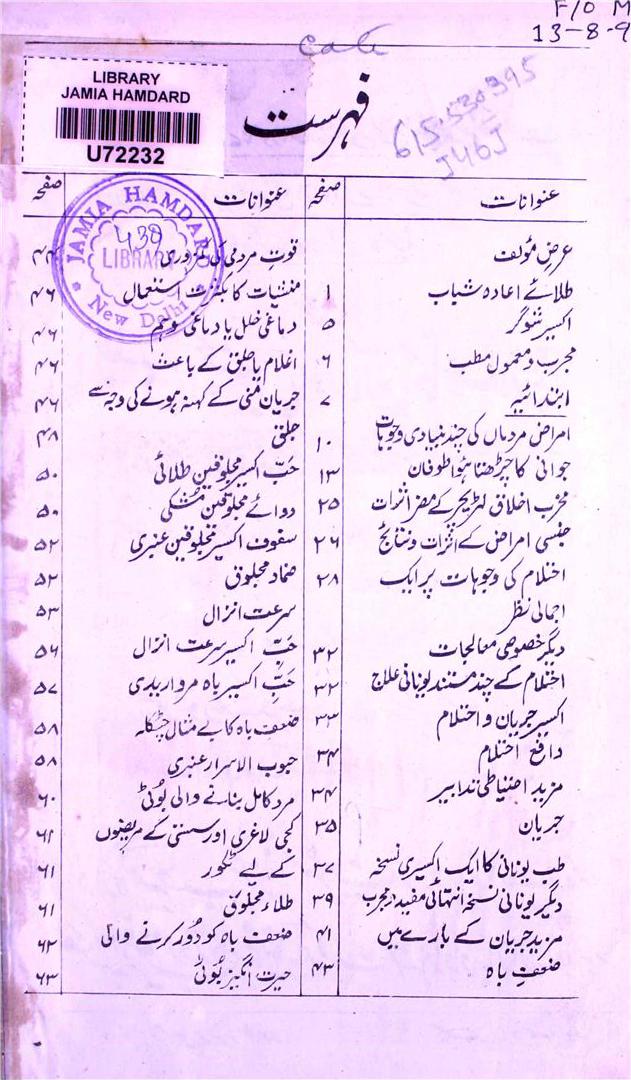 F/O M
13-8-9
LIBRARY
JAMIA HAMDARD
U72232
فہرست
615.530395
J46J
JAMIA HAMDARD
430
LIBRARY
New Delhi
عنوانات صفحہ
عرض مؤلف
طلائے اعادہ شباب ۱
اکسیر شوگر ۵
مجرب و معمول مطب ۶
ابتدائیہ ۷
امراض مردماں کی چند بنیادی وجوہات ۱۰
جوانی کا چڑھتا ہوا طوفان ۱۳
مخرب اخلاق لٹریچر کے مضر اثرات ۲۵
جنسی امراض کے اثرات و نتائج ۲۶
احتلام کی وجوہات پر ایک ۲۸
اجمالی نظر
دیگر خصوصی معالجات ۳۲
احتلام کے چند مستند یونانی علاج ۳۲
اکسیر جریان و احتلام ۳۳
دافع احتلام ۳۴
مزید احتیاطی تدابیر ۳۴
جریان ۳۵
طب یونانی کا ایک اکسیری نسخہ ۳۷
دیگر یونانی نسخہ انتہائی مفید و مجرب ۳۹
مزید جریان کے بارے میں ۴۱
ضعفِ باہ ۴۳
عنوانات صفحہ
قوتِ مردمی کی کمزوری ۴۴
منشیات کا بکثرت استعمال ۴۶
دماغی خلل یا دماغی وہم ۴۶
اغلام یا جلق کے باعث ۴۶
جریان منی کے کہنہ ہونے کی وجہ سے ۴۶
جلق ۴۸
حَبّ اکسیر مجلوقین طلائی ۵۰
دوائے مجلوقین مُشکی ۵۰
سفوف اکسیر مجلوقین عنبری ۵۲
ضماد مجلوق ۵۲
سرعت انزال ۵۳
حَبِّ اکسیر سرعت انزال ۵۶
حَبِّ اکسیر باہ مرواریدی ۵۷
ضعف باہ کا بے مثال چٹکلہ ۵۸
حبوب الاسرار عنبری ۵۸
مرد کامل بنانے والی بُوٹی ۶۰
کجی لاغری اور سستی کے مریضوں ۶۱
کے لیے ٹکور ۶۱
طلاء مجلوق ۶۱
ضعف باہ کو دُور کرنے والی ۶۲
حیرت انگیز بُوٹی ۶۳